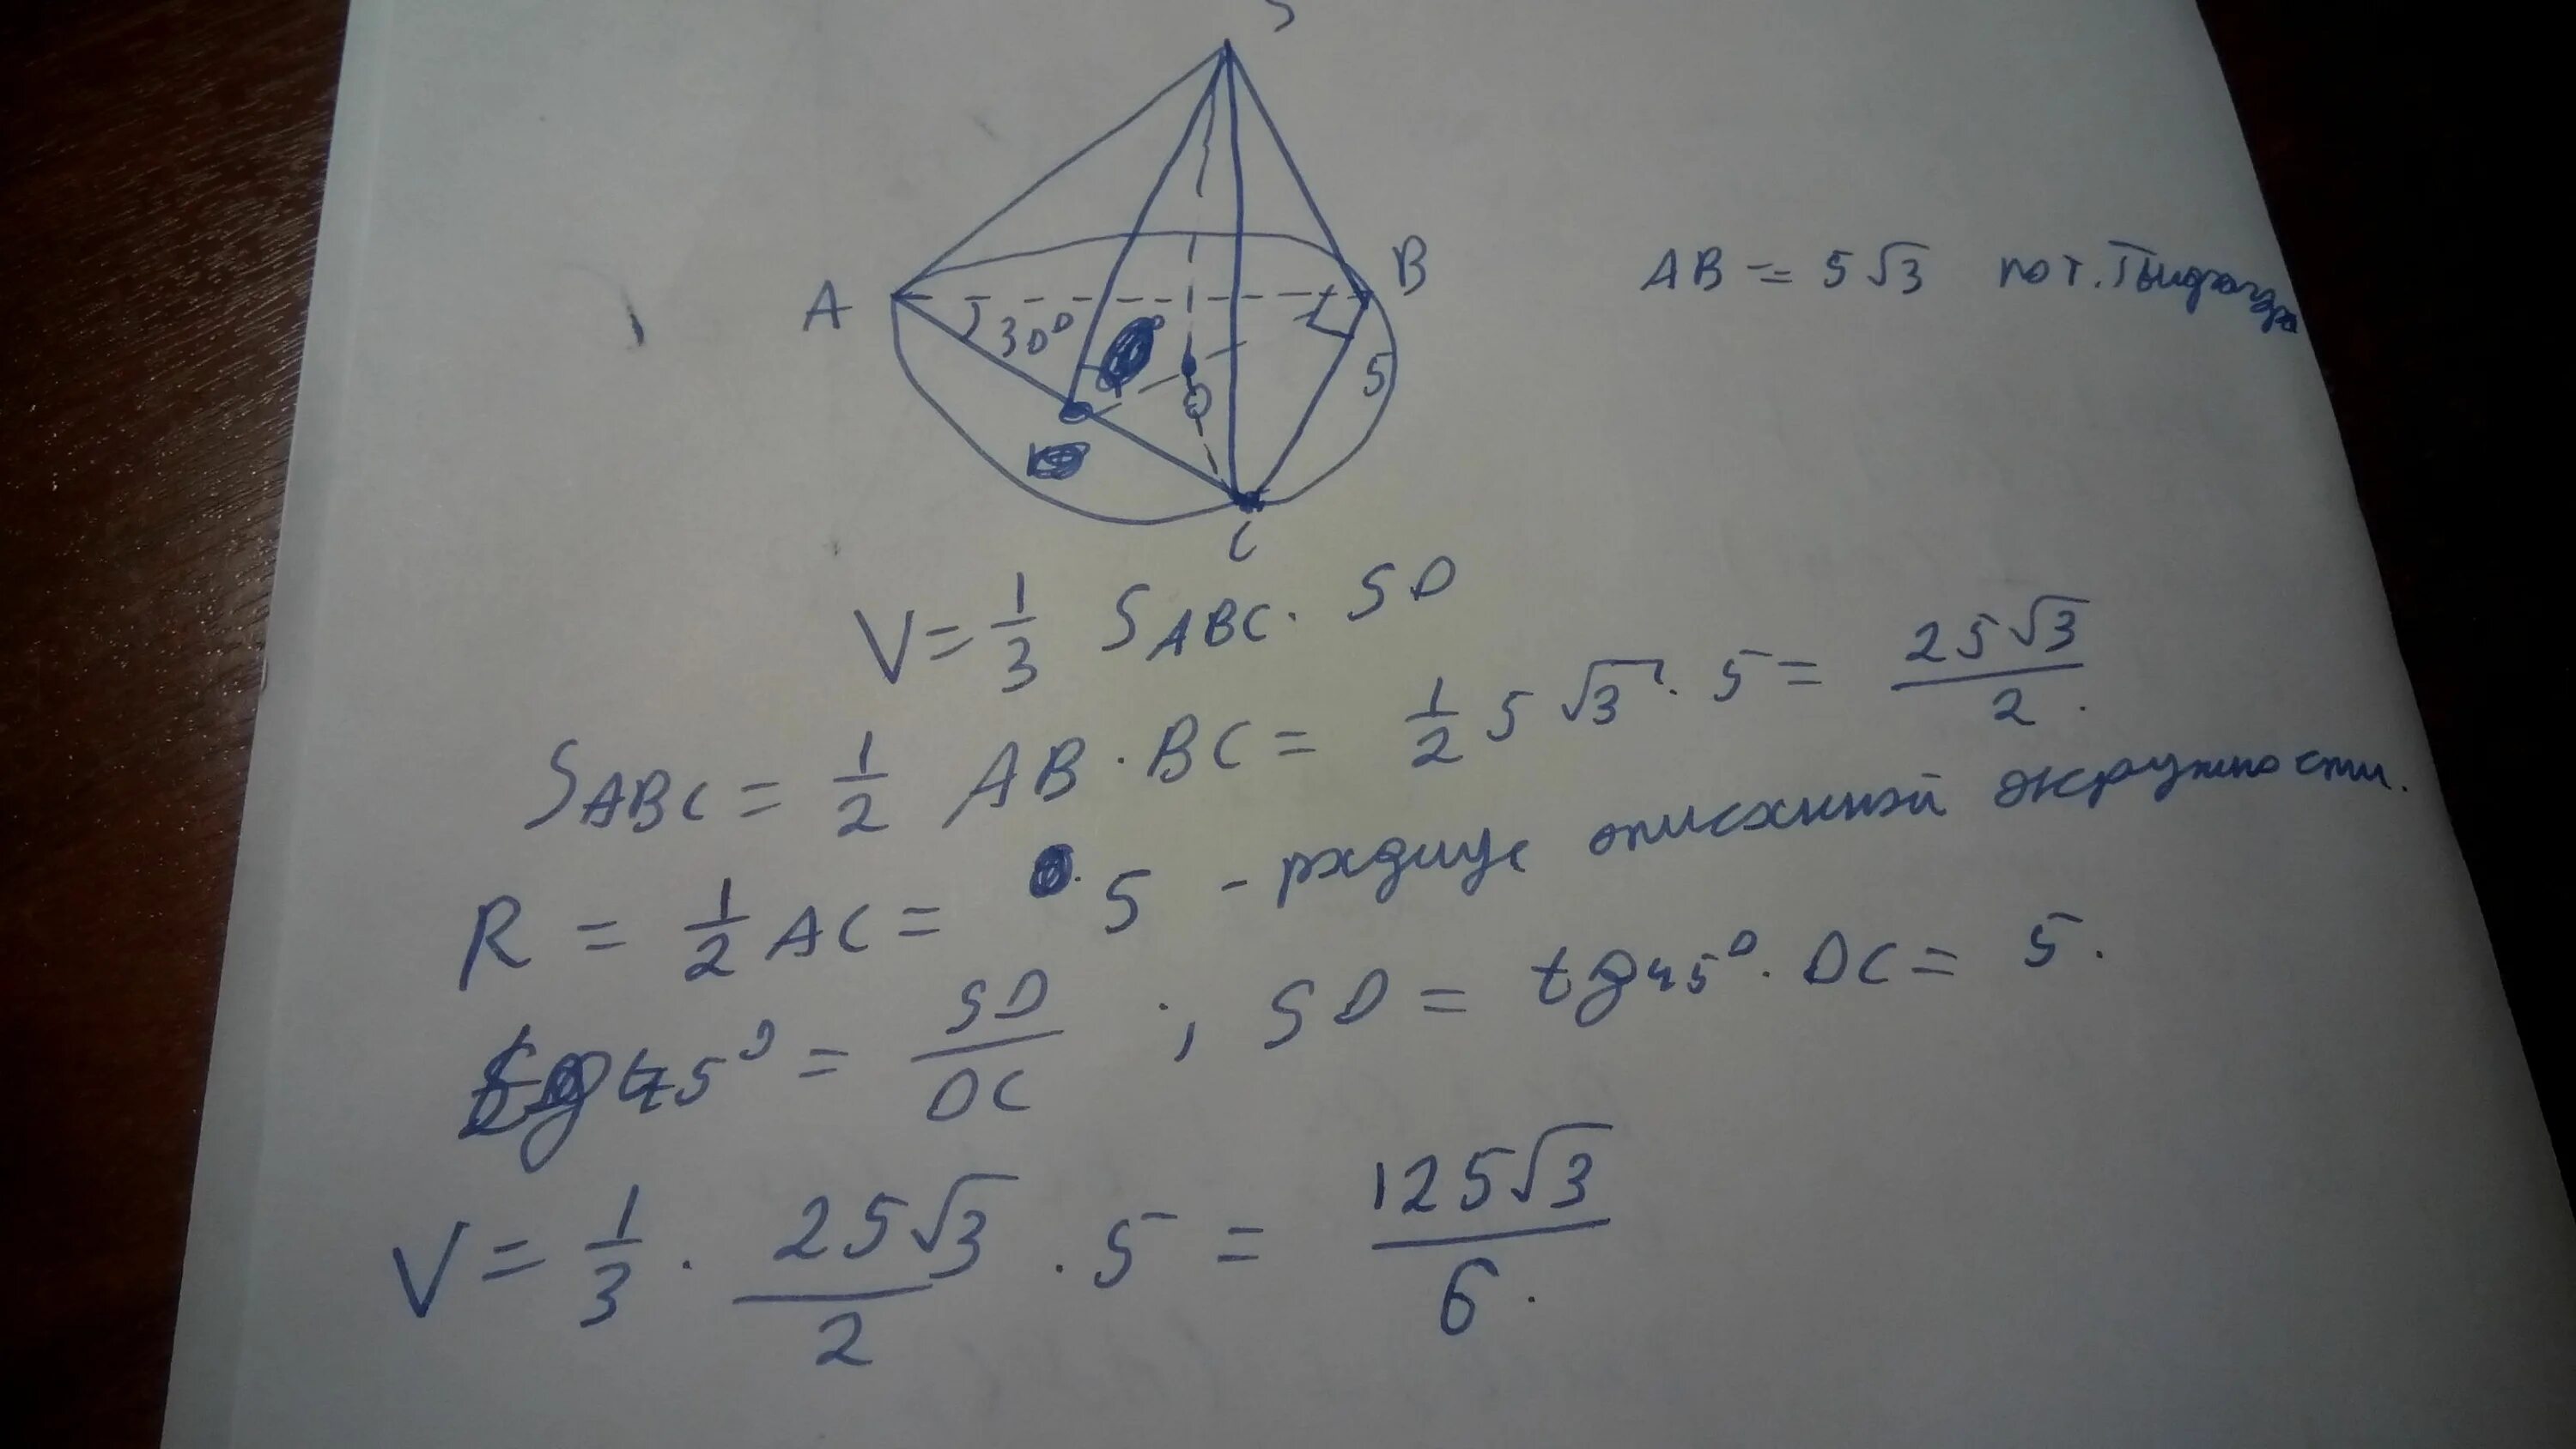 S
A
B
30°
O
5
C
AB = 5√3 по т. Пифагора
V = 1/3 S ABC · SO
S ABC = 1/2 AB · BC = 1/2 5√3 · 5 = 25√3/2.
R = 1/2 AC = 5 - радиус описанной окружности.
tg 45° = SO/OC ; SO = tg 45° · OC = 5.
V = 1/3 · 25√3/2 · 5 = 125√3/6.